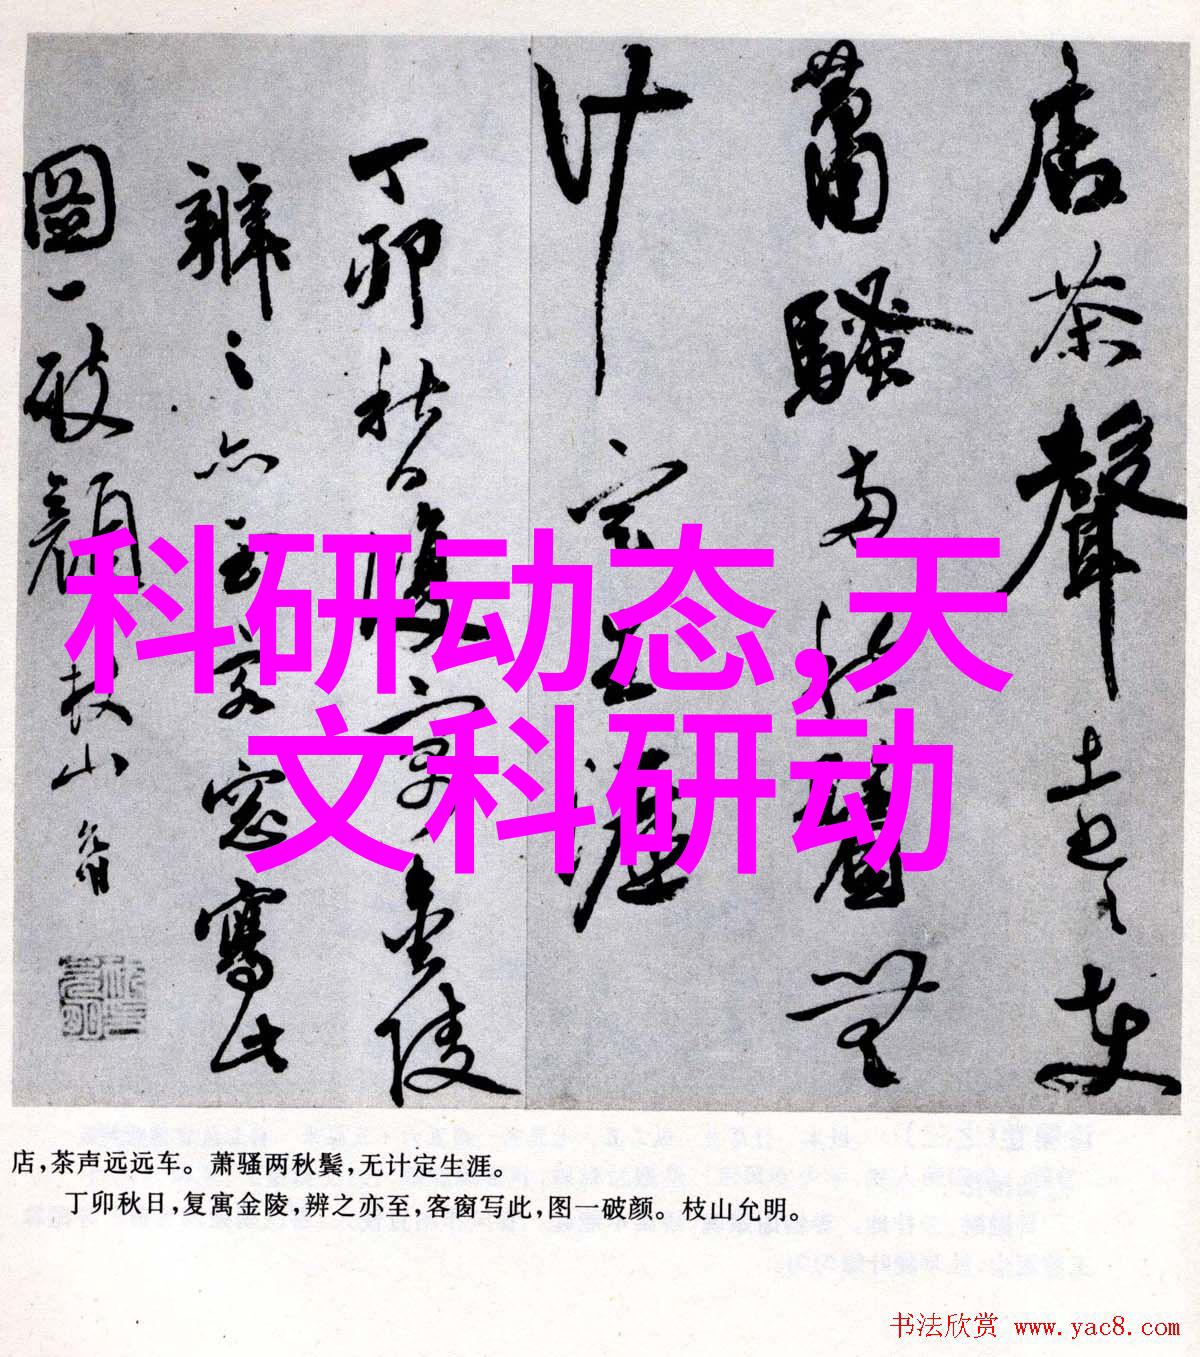 店茶聲遠々車
蕭騷兩秋鬢無
计定生涯
丁卯秋日復寓金陵
辨之亦至客窓寫此
圖一破顔枝山允明
科研动态,天
文科研动
店,茶声远远车。萧骚两秋鬓,无计定生涯。
丁卯秋日,复寓金陵,辨之亦至,客窗写此,图一破颜。枝山允明。
书法欣赏 www.yac8.com